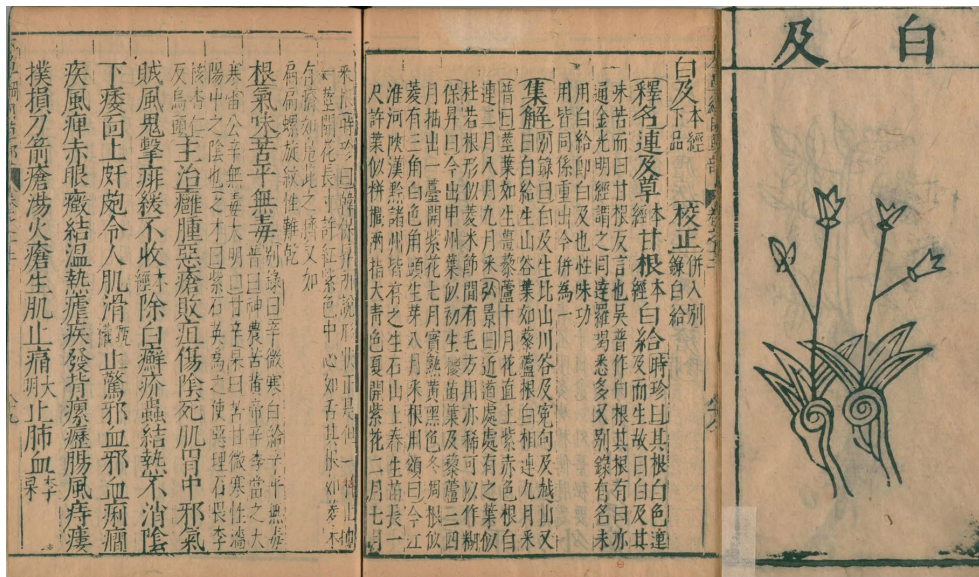 白及
白及本經下品 校正併入別錄白給
釋名連及草本經甘根本經白給時珍曰其根白色連
及而生故曰白及其
味苦而曰甘根反言也吳普作白根其根有白亦
通金光明經謂之罔達羅喝悉多又別錄有名未
用白給即白及也性味功
用皆同係重出今併為一
集解別錄曰白及生北山川谷及冤句及越山又
曰白給生山谷葉如藜蘆根白相連九月采
普曰莖葉如生薑藜蘆十月花直上紫赤色根白
連二月八月九月采弘景曰近道處處有之葉似
杜若根形似菱米節間有毛方用亦稀可以作糊
保昇曰今出申州葉似初生椶苗葉及藜蘆三四
月抽出一薹開紫花七月實熟黃黑色冬凋根似
菱有三角白色角頭生芽八月采根用頌曰今江
淮河陝漢黔諸州皆有之生石山上春生苗長一
尺許葉似栟櫚兩指大青色夏開紫花二月七月
采根時珍曰韓保昇所說形狀正是但一科止抽
一莖開花長寸許紅紫色中心如舌其根如菱米
有臍如鳧茈之臍又如
扁扁螺旋紋性難乾
根氣味苦平無毒別錄曰辛微寒白給辛平無毒
普曰神農苦黃帝辛李當之大
寒雷公辛無毒大明曰甘辛杲曰苦甘微寒性澀
陽中之陰也之才曰紫石英為之使惡理石畏李
核杏仁
反烏頭主治癰腫惡瘡敗疽傷陰死肌胃中邪氣
賊風鬼擊痱緩不收本經除白癬疥蟲結熱不消陰
下痿面上皯皰令人肌滑甄權止驚邪血邪血痢癇
疾風痺赤眼癥結溫熱瘧疾發背瘰癧腸風痔瘻
撲損刀箭瘡湯火瘡生肌止痛大明止肺血李杲